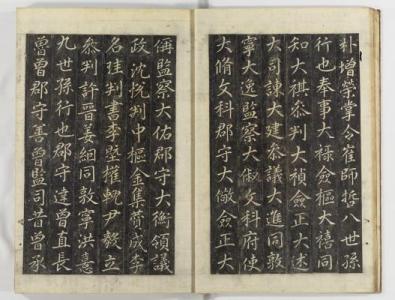 朴增榮掌令崔師哲八世孫
行也奉事大祿僉樞大禧同
知大祺叅判大禎僉正大述
大司諫大建叅議大進同敦
寧大逸監察大俶文科府使
大脩文科郡守大儆僉正大
僑監察大佑郡守大衡領議
政沈悅判中樞金集贊成李
名珪判書李墍權輗尹毅立
叅判許晉姜絪同敦寧洪憙
九世孫行也郡守達曾直長
曾郡守善曾監司昔曾承